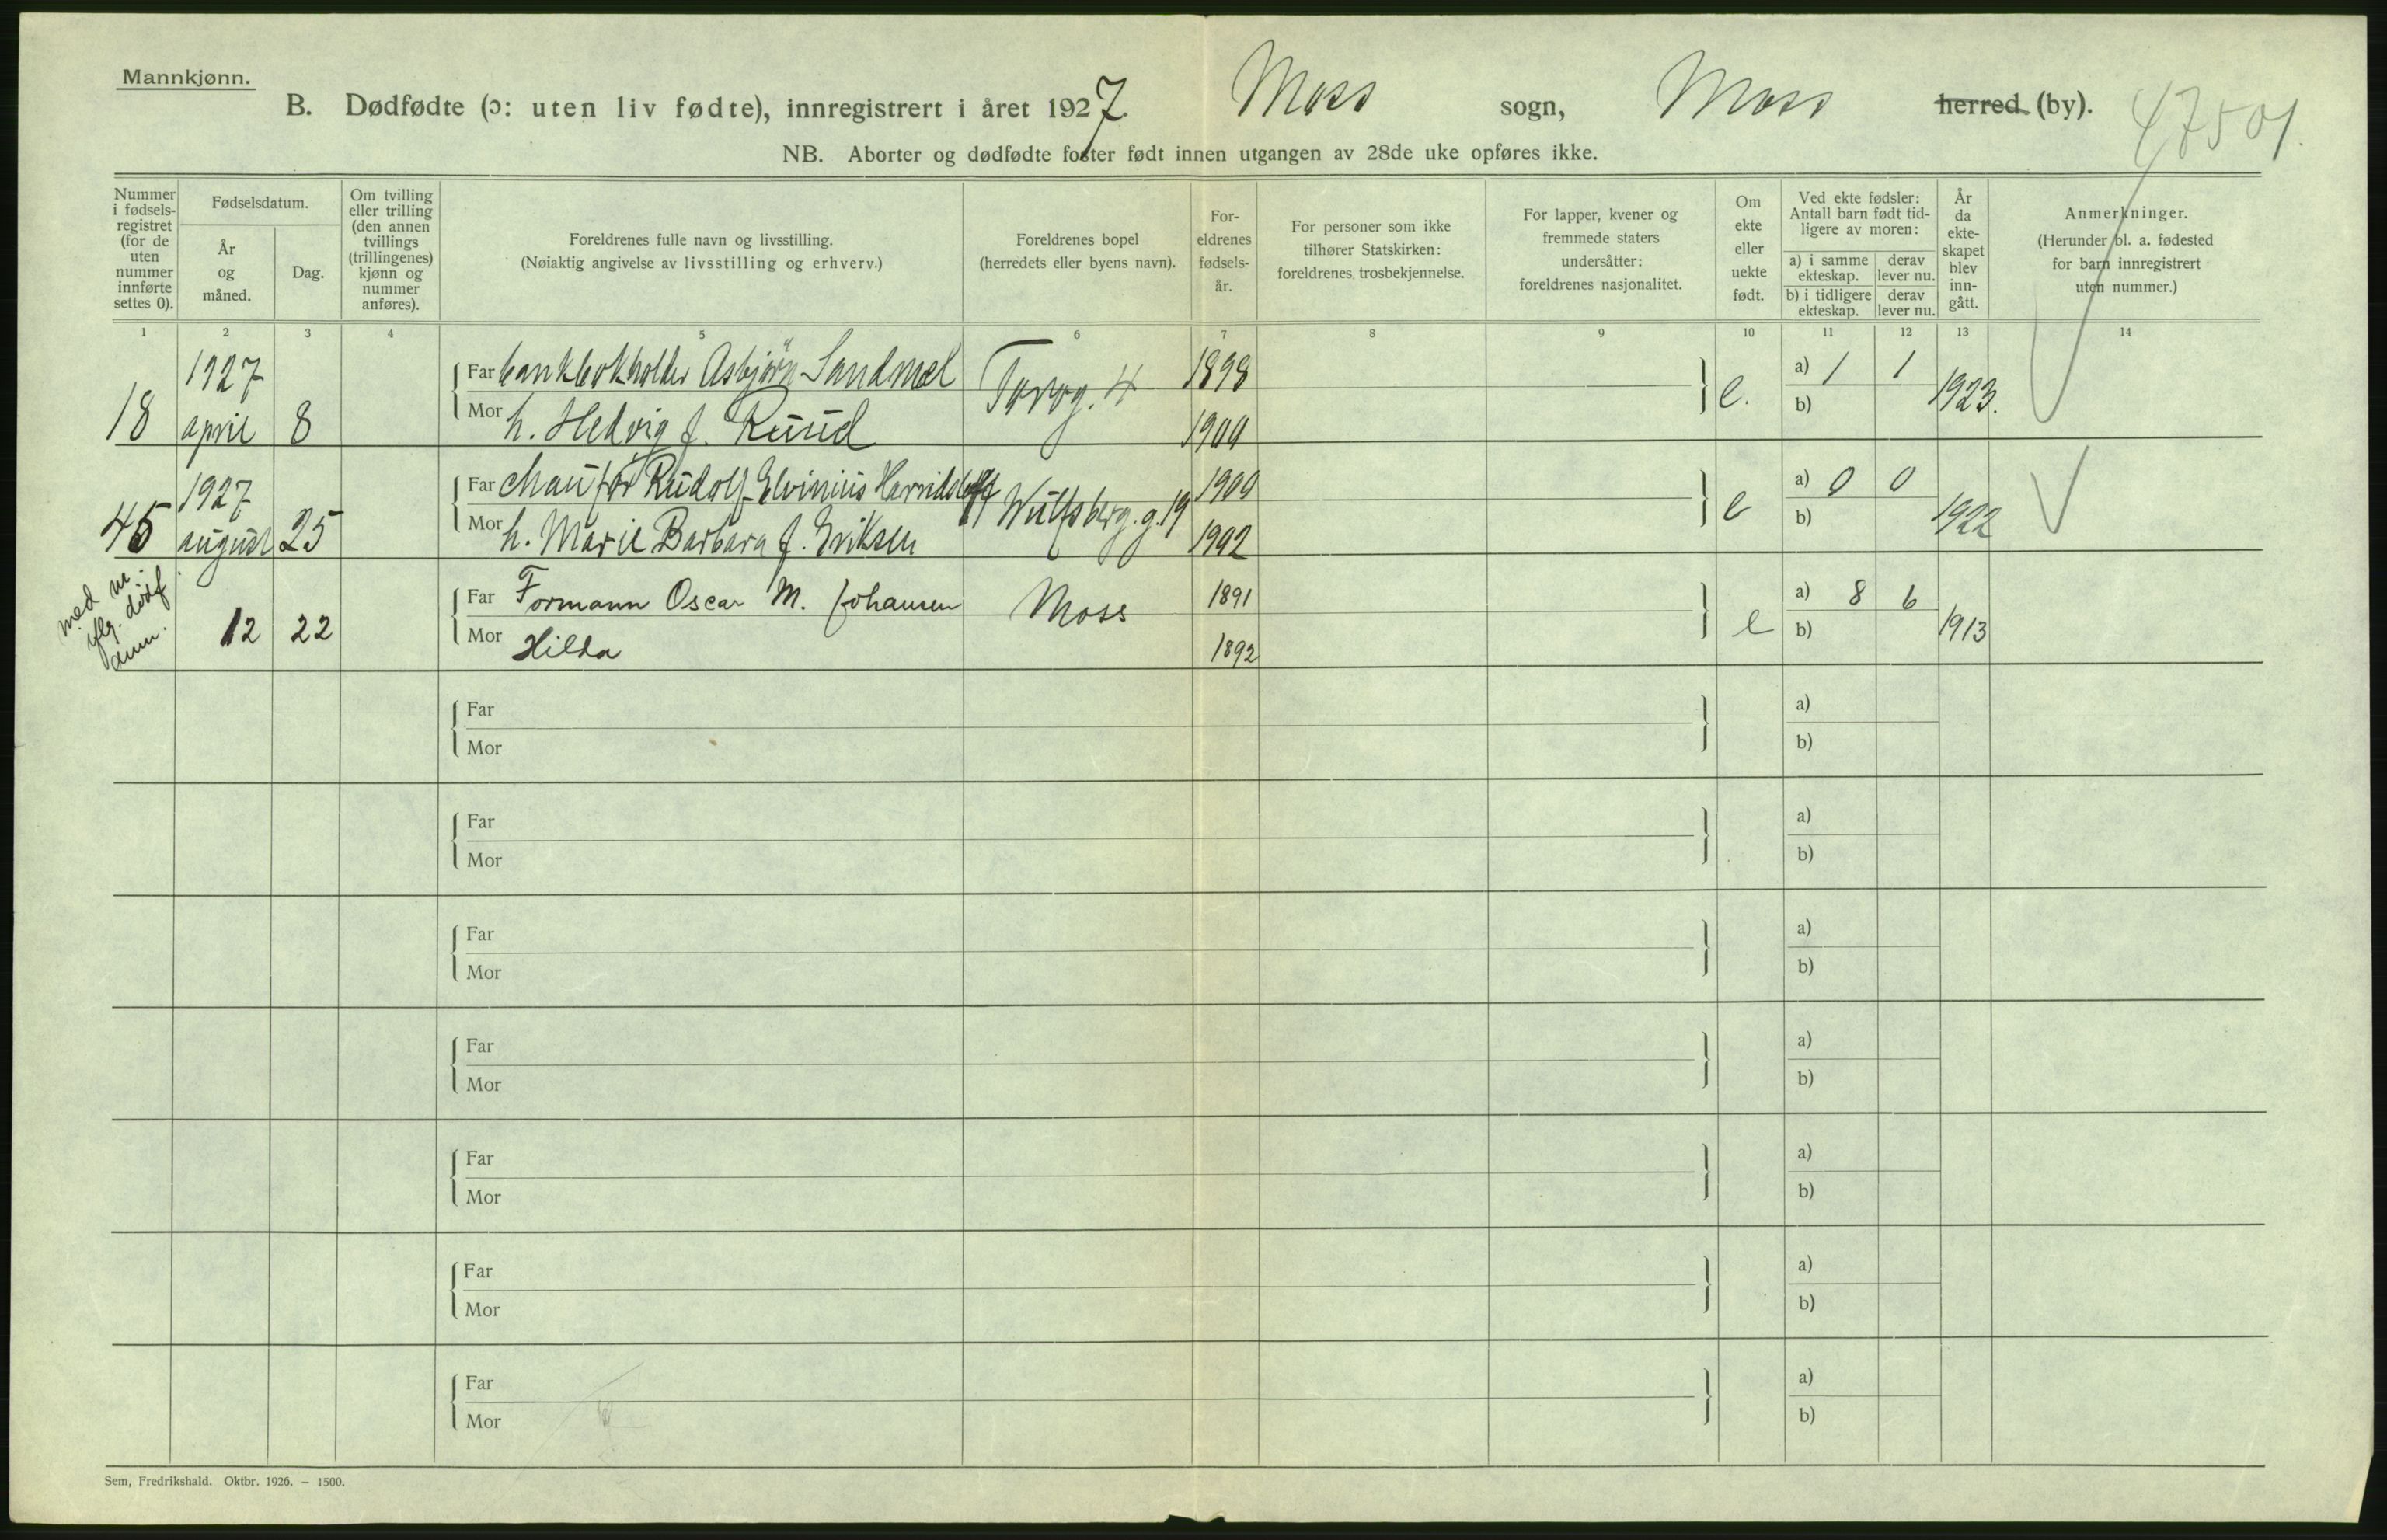 Mannkjønn.
B. Dødfødte (ɔ: uten liv fødte), innregistrert i året 1927. Moss sogn, Moss herred (by).
47501.
NB. Aborter og dødfødte foster født innen utgangen av 28de uke opføres ikke.
Nummer i fødsels- registret (for de uten nummer innførte settes 0).
Fødselsdatum.
År og måned.
Dag.
Om tvilling eller trilling (den annen tvillings (trillingenes) kjønn og nummer anføres).
Foreldrenes fulle navn og livsstilling.
(Nøiaktig angivelse av livsstilling og erhverv.)
Foreldrenes bopel
(herredets eller byens navn).
For- eldrenes fødsels- år.
For personer som ikke tilhører Statskirken: foreldrenes trosbekjennelse.
For lapper, kvener og fremmede staters undersåtter: foreldrenes nasjonalitet.
Om ekte eller uekte født.
Ved ekte fødsler: Antall barn født tid- ligere av moren:
a) i samme ekteskap. derav lever nu.
b) i tidligere ekteskap. derav lever nu.
År da ekte- skapet blev inn- gått.
Anmerkninger.
(Herunder bl. a. fødested for barn innregistrert uten nummer.)
1 2 3 4 5 6 7 8 9 10 11 12 13 14
1927 Far bankbokholder Asbjörn Sandmæl 1898 a) 1 1
18 april 8 Mor h. Hedvig f. Ruud 1900 e. b) 1923.
1927 Far chauför Rudolf Elvinius 1900 a) 0 0
45 august 25 Mor h. Marie Barbara f. Eriksen Wulfsberg.g. 19 1902 e b) 1922
med
Far Formann Oscar M. Johansen Moss 1891 a) 8 6
12 22 Mor Hilda 1892 e b) 1913
Far a)
Mor b)
Far a)
Mor b)
Far a)
Mor b)
Far a)
Mor b)
Far a)
Mor b)
Far a)
Mor b)
Far a)
Mor b)
Sem, Fredrikshald. Oktbr. 1926. – 1500.